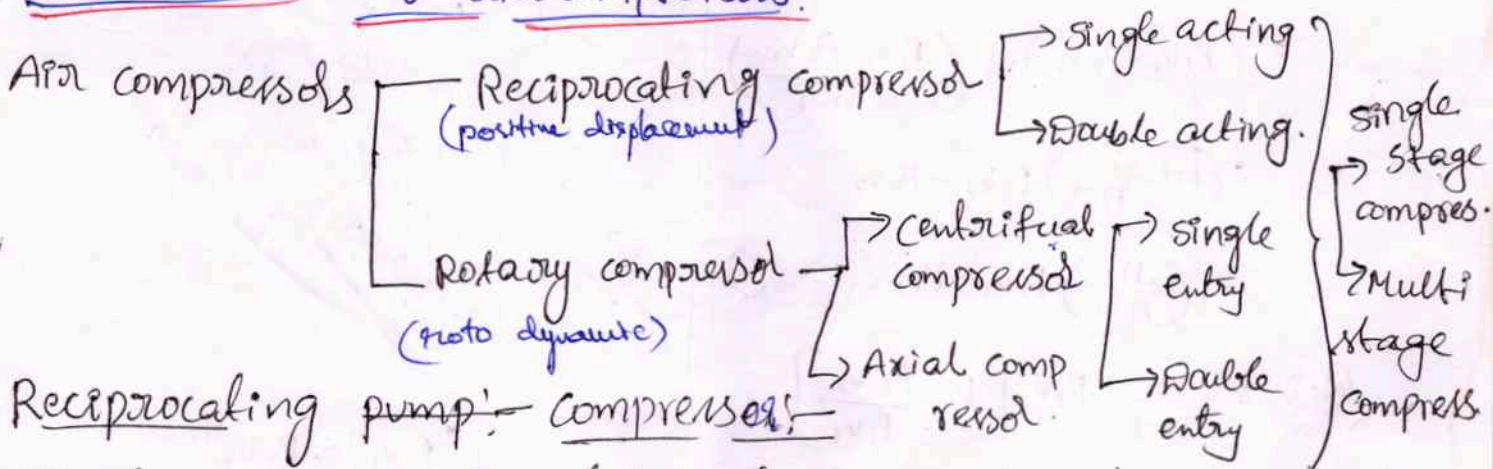 Air compressors
Reciprocating compressor
(positive displacement)
Single acting
Double acting.
Rotary compressor
(roto dynamic)
Centrifual
compressor
Single
entry
Double
entry
Axial comp
ressor.
Single
Stage
compres.
Multi
stage
compress
Reciprocating pump:- compressor:-